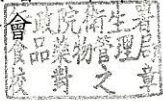 會政院衛生署
食品藥物管理局
校對之章